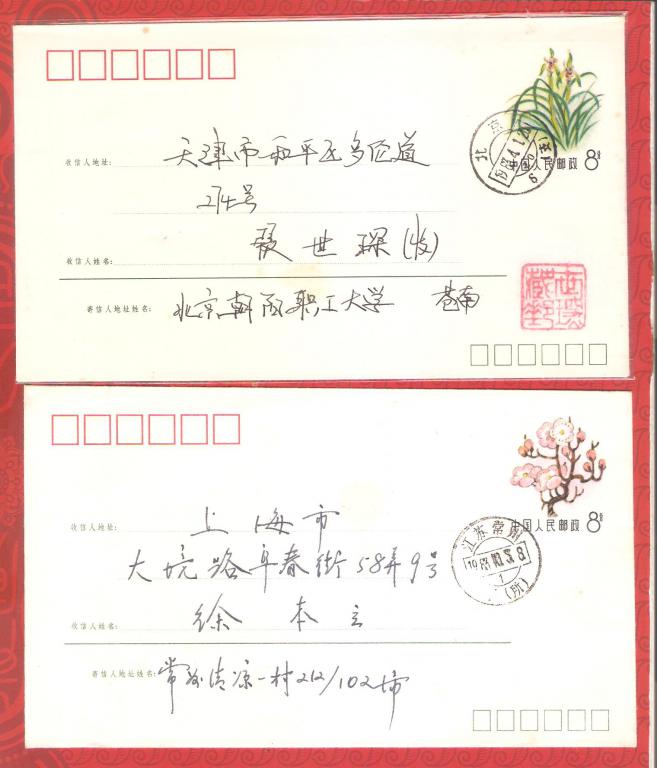 中国人民邮政 8分
北京
收信人地址: 天津市和平区多伦道
214号
收信人姓名: 聂世琛(收)
寄信人地址姓名: 北京朝阳职工大学
中国人民邮政 8分
江苏常州
收信人地址: 上海市
大境路阜春街58弄9号
收信人姓名: 徐本立
寄信人地址姓名: 常州清凉一村212/102